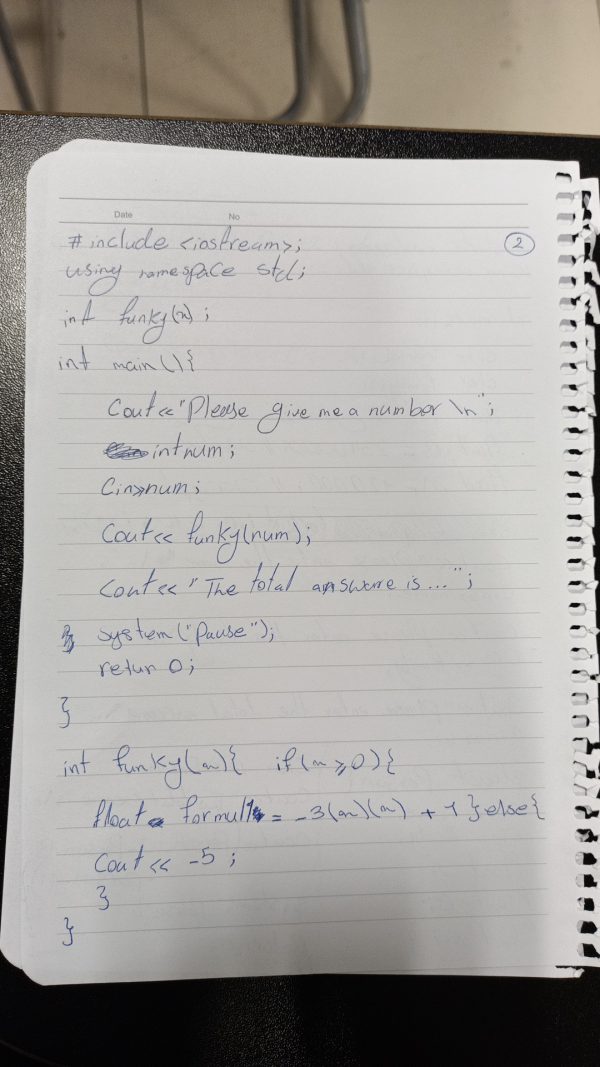 Date No
#include <iostream>; 2
using namespace std;
int funky(x);
int main(){
Cout<<"Please give me a number \n";
int num;
Cin>>num;
Cout<< funky(num);
Cout<<"The total answare is...";
system("pause");
retur 0;
}
int funky(x){ if(x≥0){
float formull = -3(x)(x) + 1 }else{
Cout<< -5;
}
}